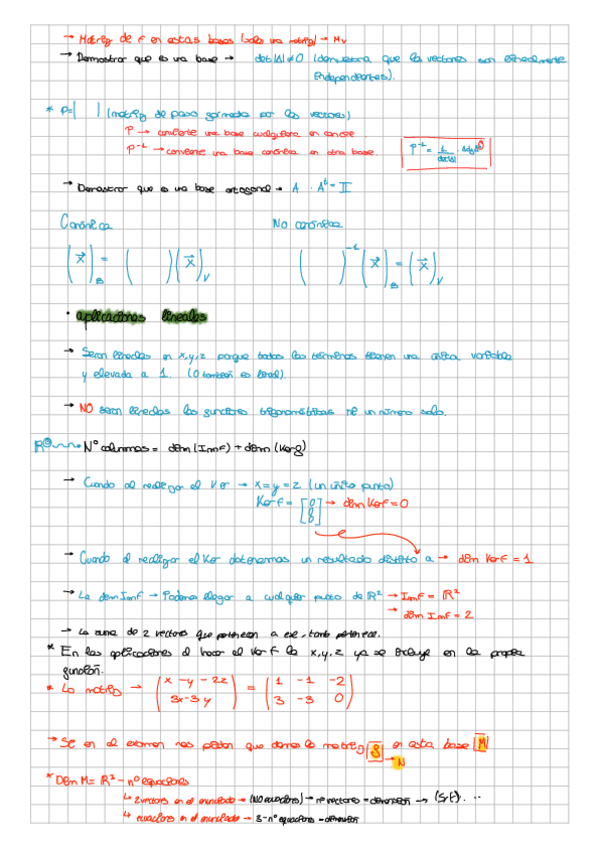 → Matriz de f en estas bases (solo una matriz) → Mv
→ Demostrar que es una base → det(A)≠0 (demuestra que los vectores son linealmente
independientes).
* P=( ) (matriz de paso formada por los vectores)
P → convierte una base cualquiera en canóni
P⁻¹ → convierte una base canónica en otra base.
P⁻¹ = 1/det(A) · Adj
→ Demostrar que es una base ortogonal → A · Aᵗ = I
Canónica No canónica
(x⃗)B = ( ) (x⃗)V ( )⁻¹ (x⃗)B = (x⃗)V
· aplicaciones lineales
→ Serán lineales en x,y,z porque todos los términos tienen una única variable
y elevada a 1. (0 también es lineal).
→ NO serán lineales las funciones trigonométricas ni un número solo.
Nº columnas = dim (Imf) + dim (Kerf)
→ Cuando al realizar el Ker → x=y=z (un único punto)
Kerf = [0 0 0] → dim Kerf = 0
→ Cuando al realizar el Ker obtenemos un resultado distinto a → dim Kerf = 1
→ La dim Imf → Podemos llegar a cualquier punto de ℝ² → Imf = ℝ²
→ dim Imf = 2
→ La suma de 2 vectores que pertenecen a ese, tanto pertenece.
* En las aplicaciones al hacer el Kerf la x,y,z ya se incluye en la propia
función.
* La matriz → (x -y -2z / 3x-3y) = (1 -1 -2 / 3 -3 0)
→ Si en el examen nos piden que demos la matriz S en esta base M
→ N
* Dim M = ℝ³ - nº ecuaciones
↳ 2 vectores en el enunciado → (NO ecuaciones) → nº vectores = dimensión →
↳ ecuaciones en el enunciado → 3 - nº ecuaciones = dimensión